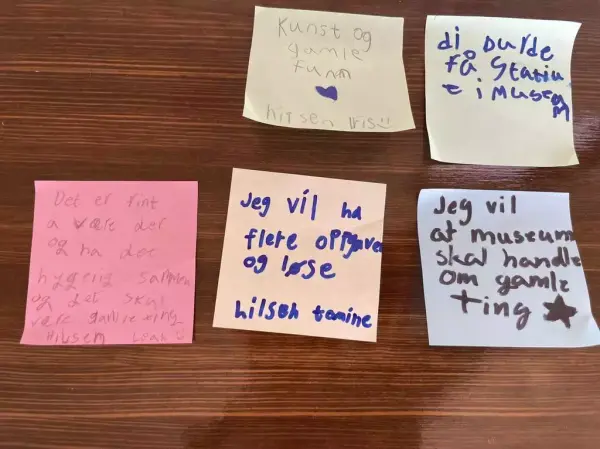 Kunst og
gamle
funn
hilsen Iris
di burde
Få Statiu
e i museu
m
Det er fint
a være der
og ha det
hyggelig sammen
og det skal
være gamle ting
Hilsen
Jeg vil ha
flere oppgaver
og løse
hilsen tomine
Jeg vil
at museum
skal handle
om gamle
ting